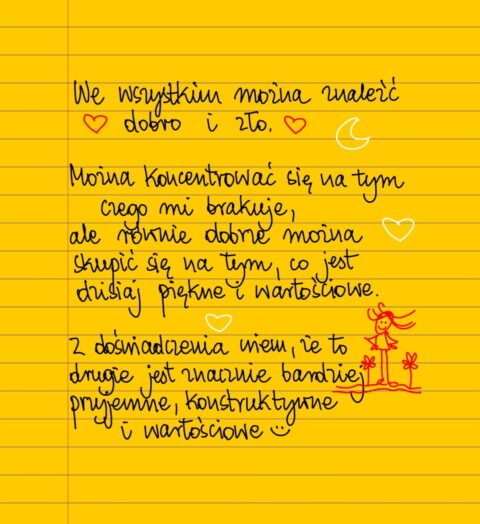 We wszystkim można znaleźć
dobro i zło.
Można koncentrować się na tym
czego mi brakuje,
ale równie dobrze można
skupić się na tym, co jest
dzisiaj piękne i wartościowe.
Z doświadczenia wiem, że to
drugie jest znacznie bardziej
przyjemne, konstruktywne
i wartościowe